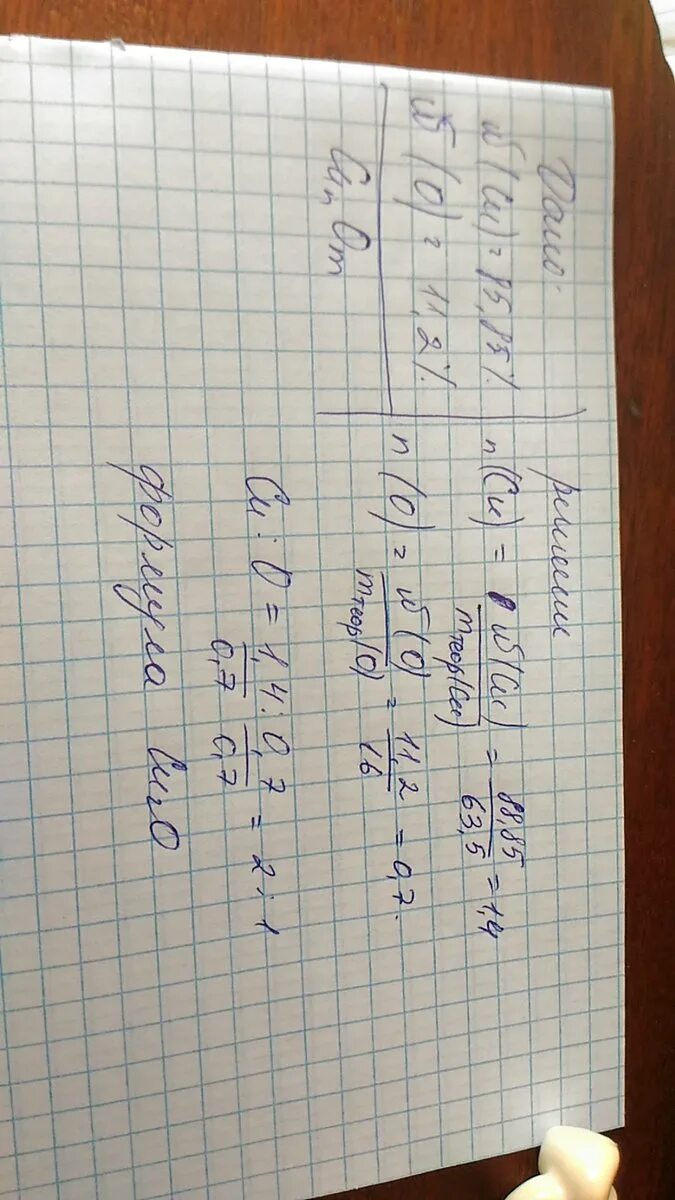 Дано:
ω(Cu) = 85,85%
ω(O) = 11,2%
CunOm
решение
n(Cu) = ω(Cu) / mтеор(Cu) = 88,85 / 63,5 = 1,4
n(O) = ω(O) / mтеор(O) = 11,2 / 16 = 0,7.
Cu : O = 1,4 / 0,7 : 0,7 / 0,7 = 2 : 1
формула Cu2O